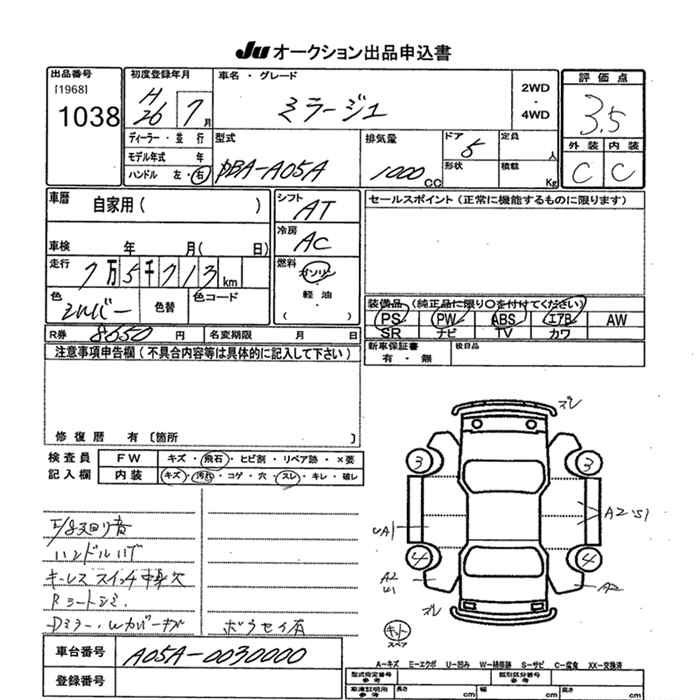 Ju オークション出品申込書
出品番号
[1968]
1038
初度登録年月
H
26 7月
車名・グレード
ミラージュ
2WD
・
4WD
評価点
3.5
外装 内装
C C
ディーラー・並行
モデル年式 年
ハンドル 左・右
型式
DBA-A05A
排気量
1000 CC
ドア 5
形状
定員 人
積載 Kg
車歴
自家用( )
車検 年 月( 日)
走行 7万5千713km
色 シルバー
色替
色コード
シフト
AT
冷房
AC
燃料
ガソリン
軽油
( ・ )
セールスポイント(正常に機能するものに限ります)
装備品(純正品に限り○を付けてください)
PS PW ABS エアB AW
SR ナビ TV カワ
R券 8650円
名変期限 月 日
新車保証書
有・無
後日品
注意事項申告欄(不具合内容等は具体的に記入して下さい)
修復歴 有 〔箇所
検査員
記入欄
FW キズ・飛石・ヒビ割・リペア跡・×要
内装 キズ・汚れ・コゲ・穴・スレ・キレ・破レ
ハンドルハゲ
キーレススイッチ
Rシートシミ
ズレ
3 3
UA1
A2・S1
4 4
A2
U1
A2
ズレ
キット
スペア
車台番号 A05A-0030000
登録番号
A-キズ E-エクボ U-凹み W-補修跡 S-サビ C-腐食 XX-交換済
型式指定番号
参考
類別区分番号
参考
車庫証明用
参考
長さ cm
幅 cm
高さ cm